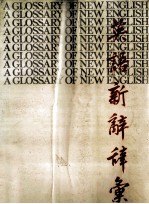 A GLOSSARY OF NEW ENGLISH
A GLOSSARY OF NEW ENGLISH
A GLOSSARY OF NEW ENGLISH
A GLOSSARY OF NEW ENGLISH
A GLOSSARY OF NEW ENGLISH
A GLOSSARY OF NEW ENGLISH
A GLOSSARY OF NEW ENGLISH
A GLOSSARY OF NEW ENGLISH
A GLOSSARY OF NEW ENGLISH
A GLOSSARY OF NEW ENGLISH
英語新辭辭彙